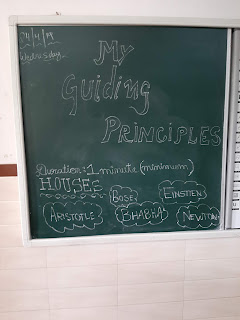 24/4/19
Wednesday
My
Guiding
PRINCIPLES
Duration:1 minute (minimum)
HOUSE:
BOSE EINSTIEN
ARISTOTLE BHABHA NEWTON